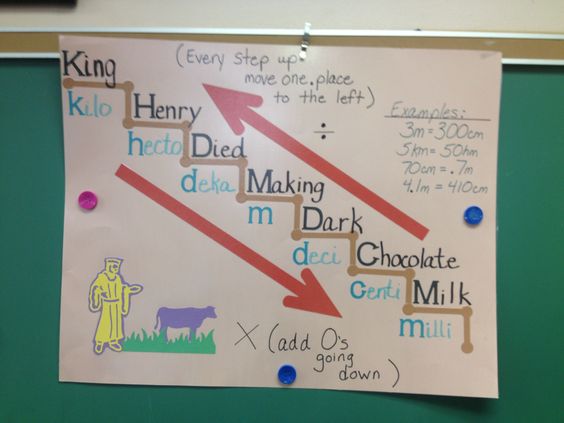 (Every step up
move one place
to the left)
King
kilo
Henry
hecto
Died
deka
Making
m
Dark
deci
Chocolate
centi
Milk
milli
÷
Examples:
3m = 300cm
5km = 50hm
70cm = .7m
4.1m = 410cm
X (add 0's
going
down)